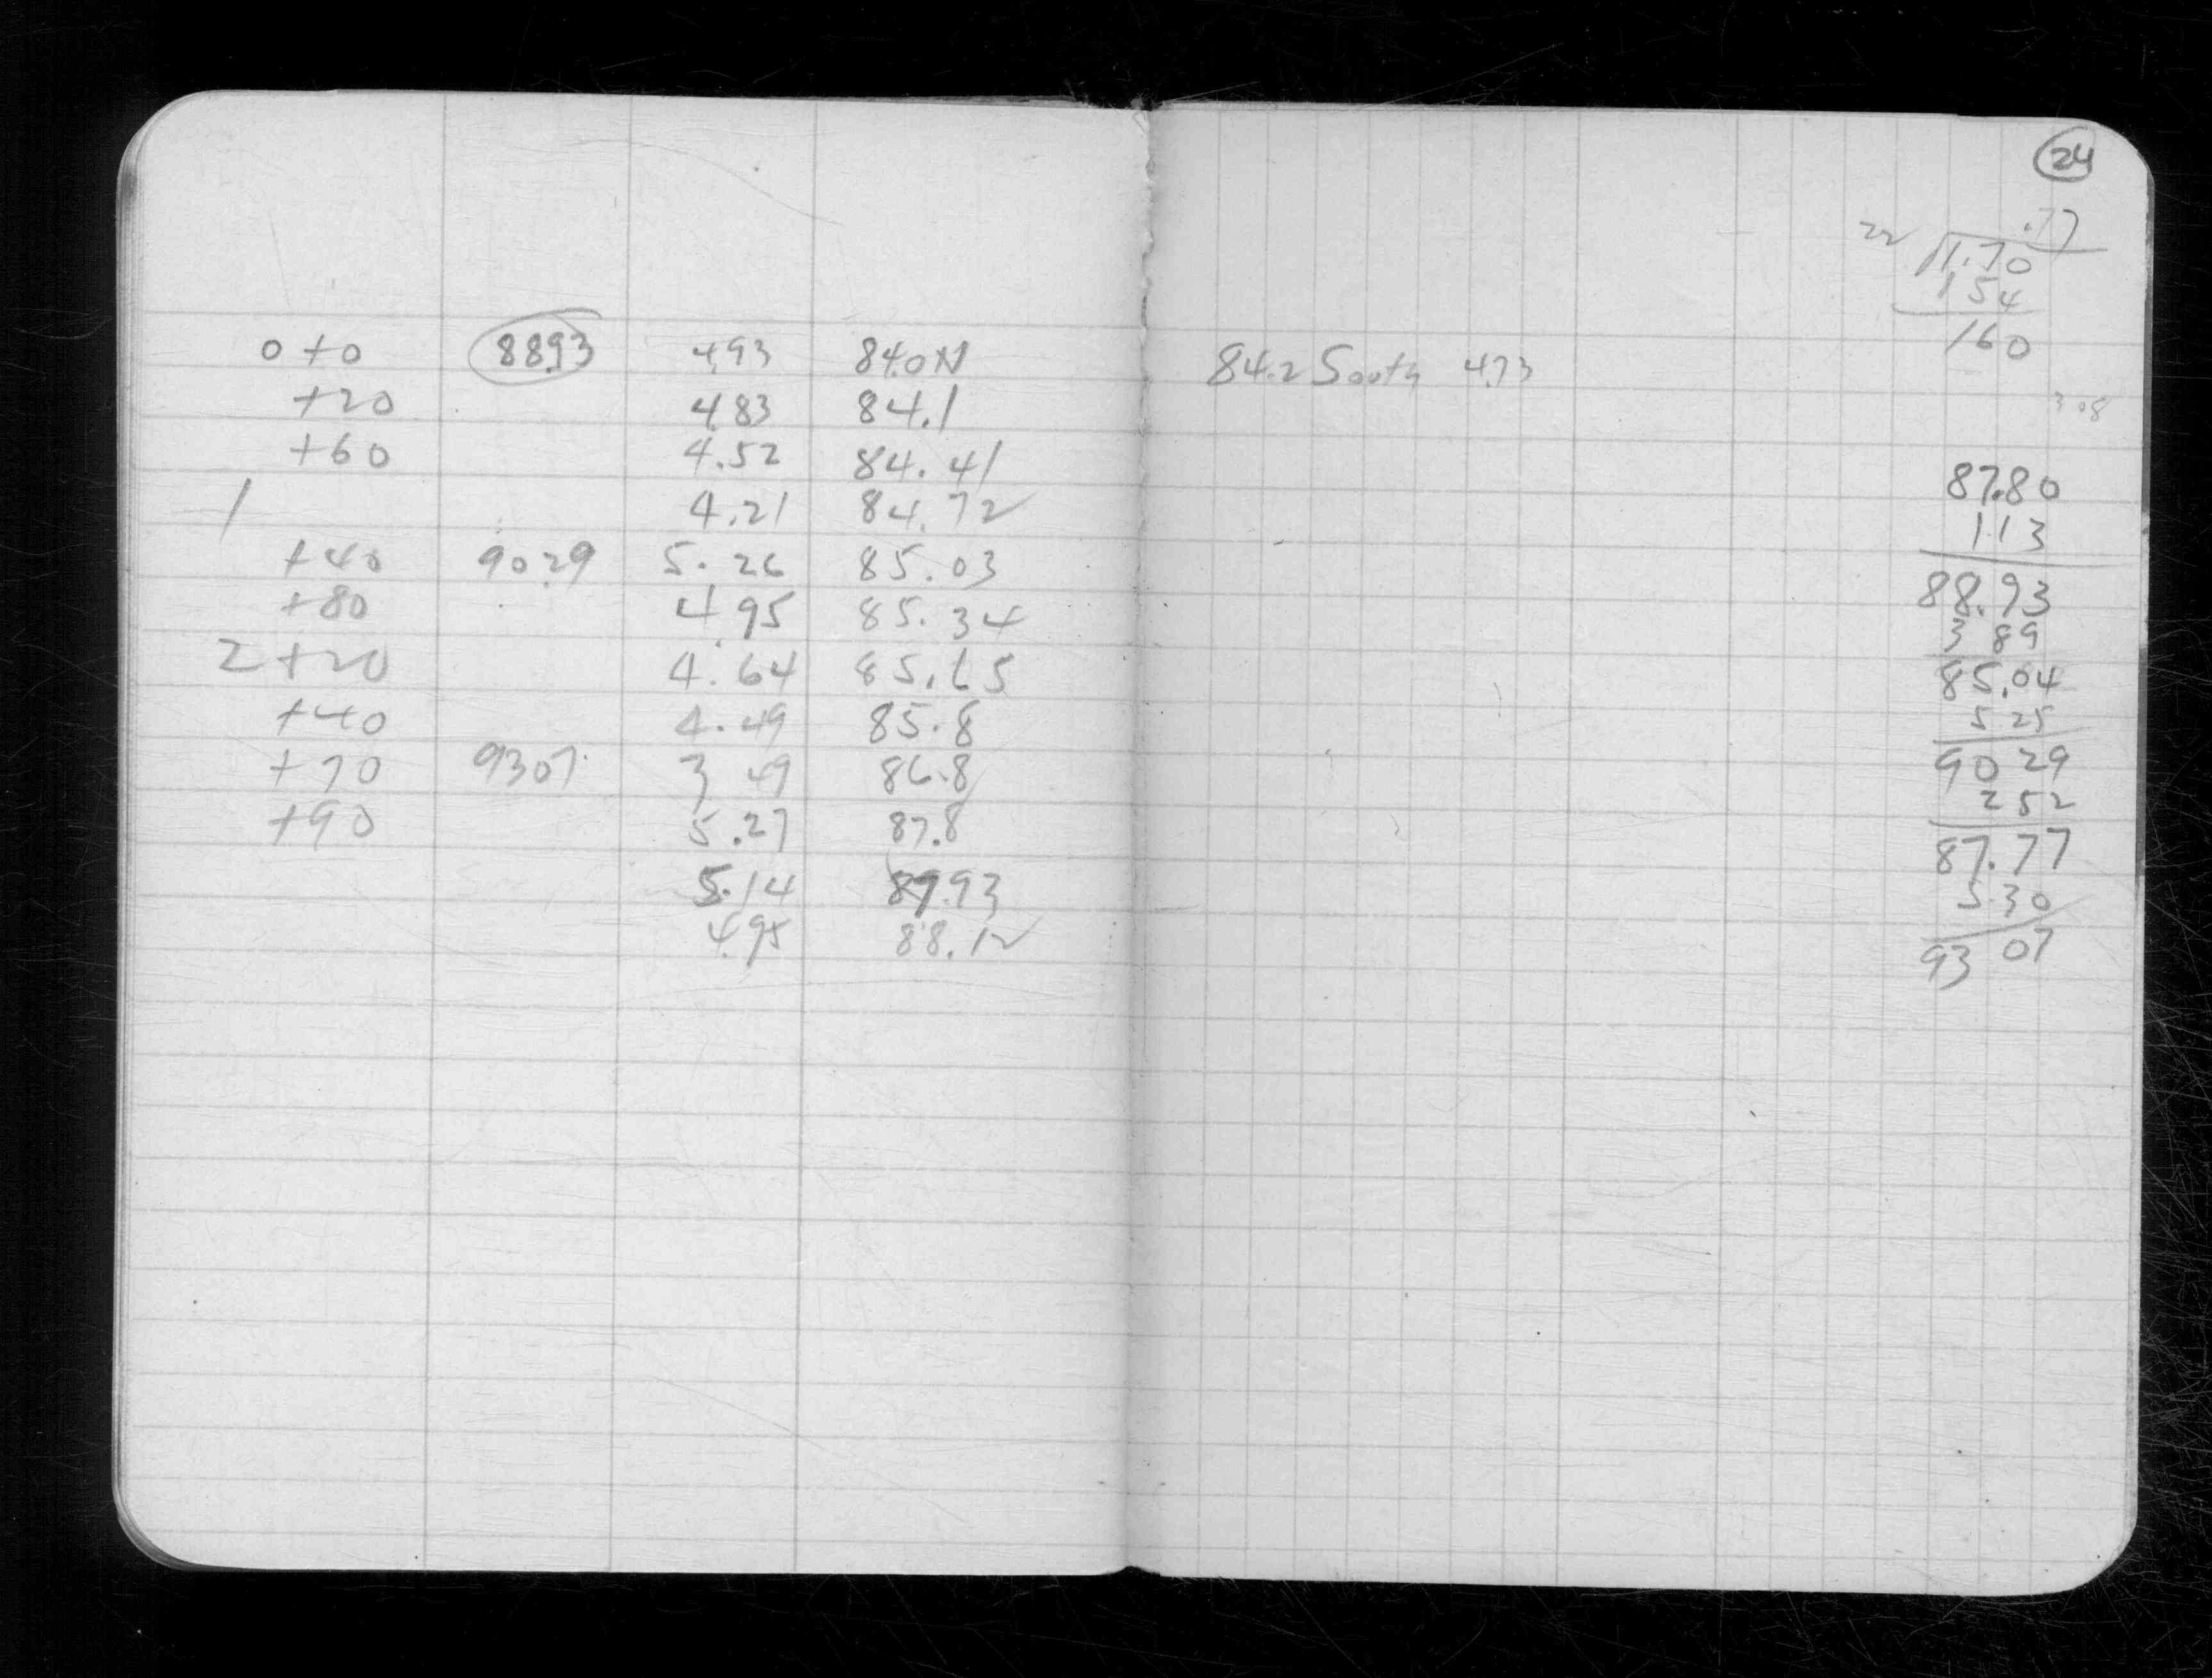 0+0 8893 4.93 84.0N
+20 4.83 84.1
+60 4.52 84.41
1 4.21 84.72
+40 9029 5.26 85.03
+80 4.95 85.34
2+20 4.64 85.65
+40 4.49 85.8
+70 9307 3 49 86.8
+90 5.27 87.8
5.14 87.93
4.95 88.12
24
.77
22 1.70
154
160
84.2 South 4.73
3.08
87.80
1.13
88.93
3 89
85.04
5 25
90 29
2 52
87.77
5.30
93 07